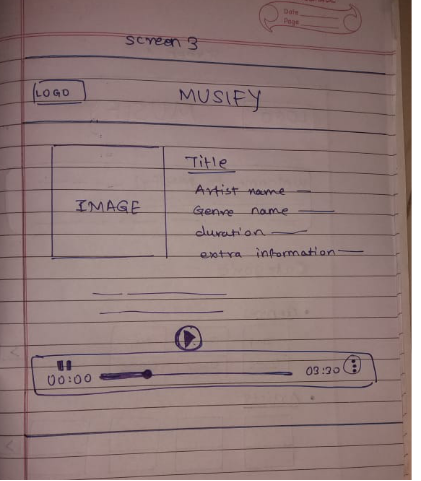 Date
Page
screen 3
LOGO
MUSIFY
Title
Artist name
IMAGE
Genre name
duration
extra information
00:00
03:20